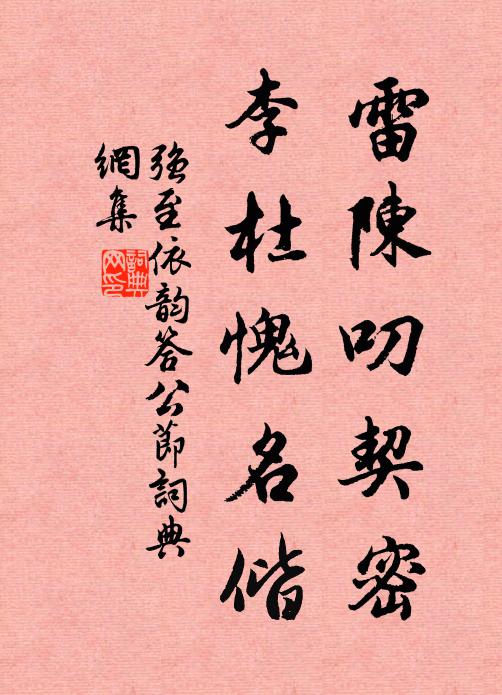 雷陳叨契密
李杜愧名偕
強至依韵答公節詞典
網集
詞典網印